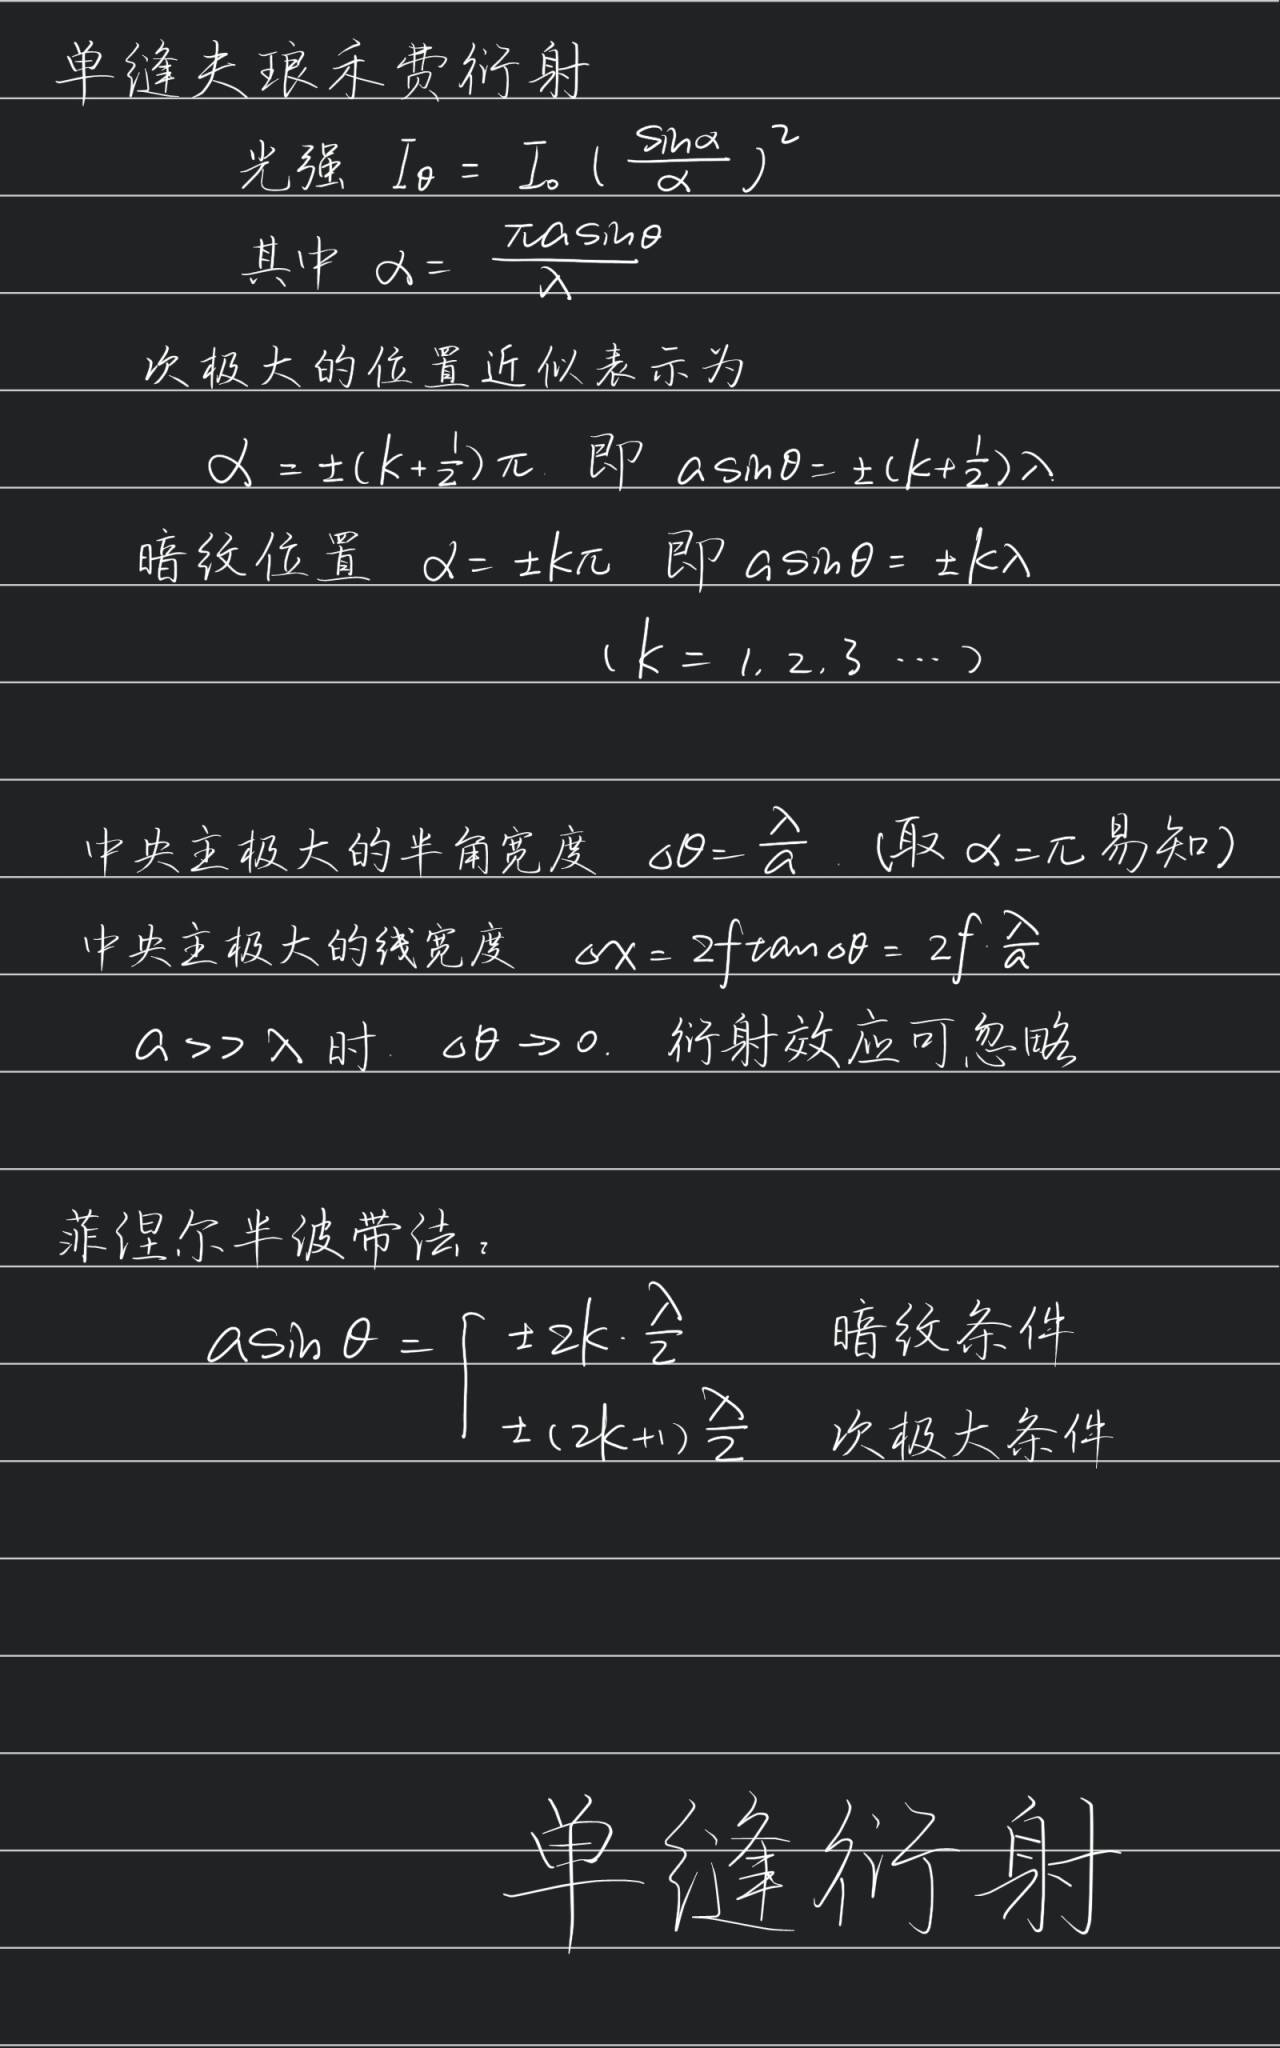 单缝夫琅禾费衍射
光强 I_θ = I₀ (sinα/α)²
其中 α = πa sinθ/λ
次极大的位置近似表示为
α = ±(k+1/2)π. 即 a sinθ = ±(k+1/2)λ
暗纹位置 α = ±kπ 即 a sinθ = ±kλ
(k = 1, 2, 3 …)
中央主极大的半角宽度 Δθ = λ/a. (取 α=π 易知)
中央主极大的线宽度 Δx = 2f tanΔθ = 2f·λ/a
a >> λ 时. Δθ → 0. 衍射效应可忽略
菲涅尔半波带法:
a sinθ = { ±2k·λ/2 暗纹条件
±(2k+1)λ/2 次极大条件
单缝衍射